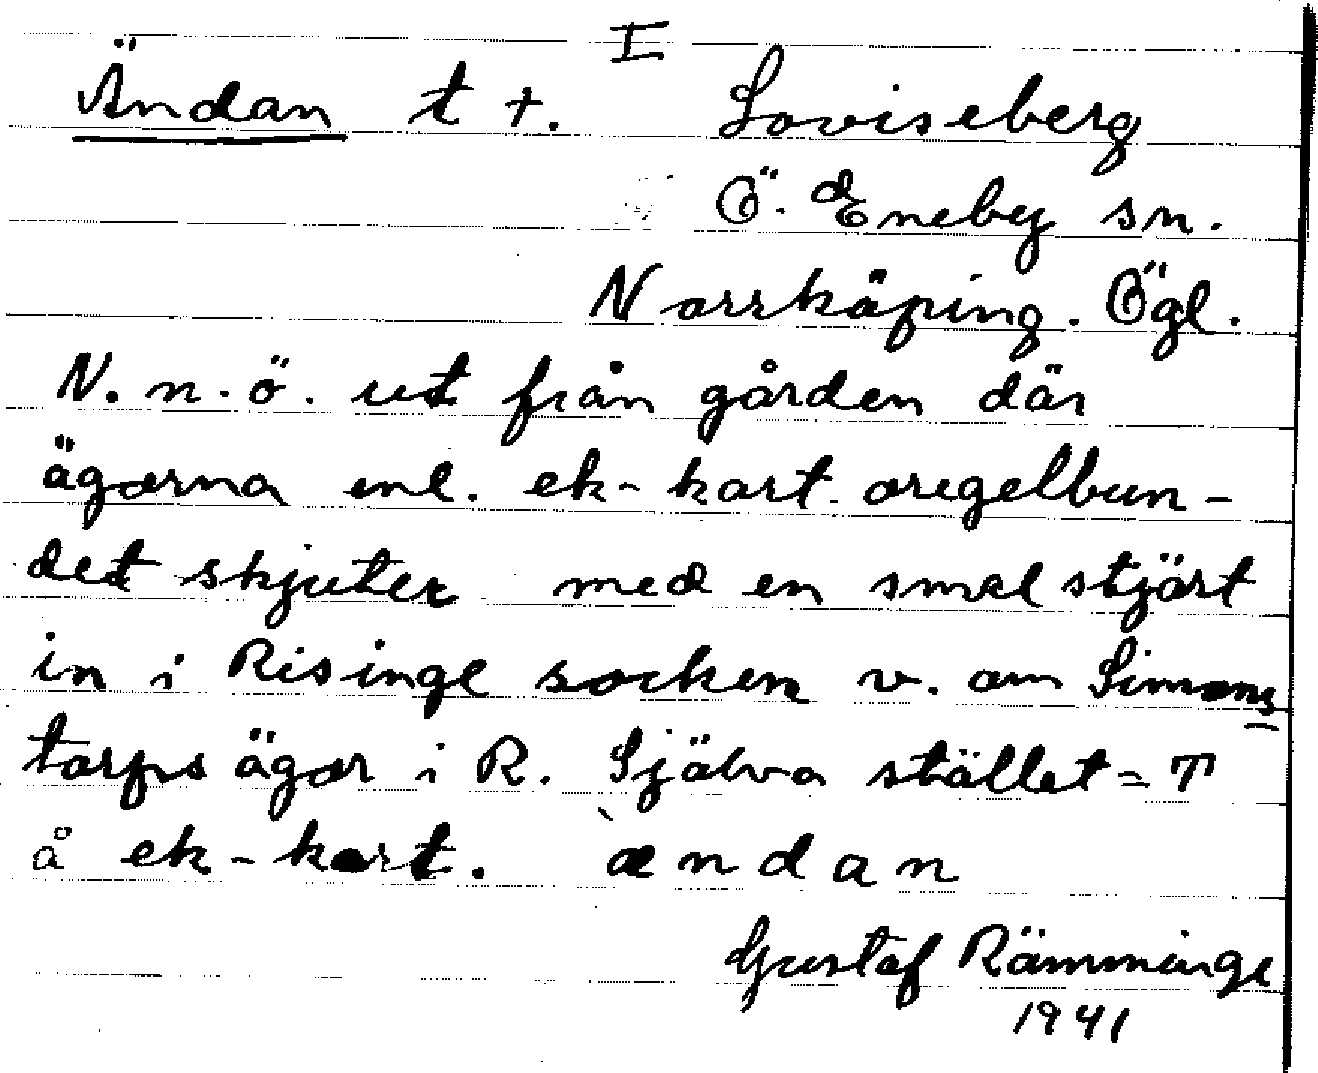 I
Ändan t +. Loviseberg
Ö. Eneby sn.
Norrköping. Ögl.
N. n. ö. ut från gården där
ägorna enl. ek-kart. oregelbun-
det skjuter med en smal stjärt
in i Risinge socken v. om Simons
torps ägor i R. Själva stället = T
å ek-kart. ὰendan
Gustaf Rämminge
1941